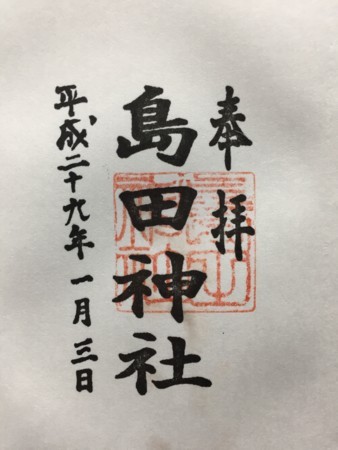 奉拝
島田神社
平成二十九年一月三日